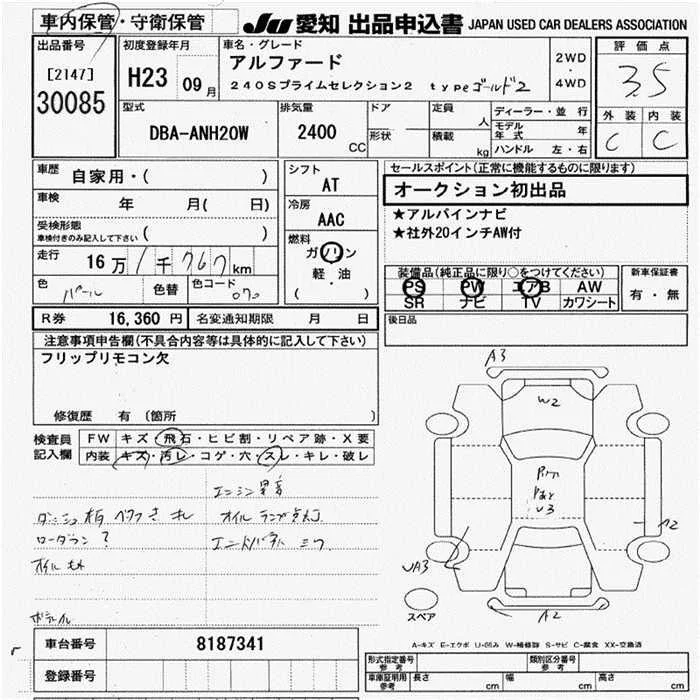 車内保管・守衛保管
JU 愛知 出品申込書 JAPAN USED CAR DEALERS ASSOCIATION
出品番号
[2147]
30085
初度登録年月
H23 09月
車名・グレード
アルファード
240Sプライムセレクション2 typeゴールド2
2WD
・
4WD
評価点
3.5
外装 内装
C C
型式
DBA-ANH20W
排気量
2400
CC
ドア
形状
定員
人
積載
kg
ディーラー・並行
モデル年式 年
ハンドル 左・右
車歴
自家用・( )
車検
年 月( 日)
受検形態
車検付きのみ記入して下さい ( )
走行
16万1千767km
色
パール
色替
色コード
070
シフト
AT
冷房
AAC
燃料
ガソリン
軽・油
( )
セールスポイント(正常に機能するものに限ります)
オークション初出品
★アルパインナビ
★社外20インチAW付
装備品(純正品に限り○をつけてください)
PS PW エアB AW
SR ナビ TV カワシート
新車保証書
有・無
R券 16,360円 名変通知期限 月 日
後日品
注意事項申告欄(不具合内容等は具体的に記入して下さい)
フリップリモコン欠
修復歴 有 (箇所 )
検査員
記入欄
FW キズ・飛石・ヒビ割・リペア跡・X要
内装 キズ・汚レ・コゲ・穴・スレ・キレ・破レ
エンジン異音
オイルランプ点灯
A3
W2
U3
A2
UA3
A2
スペア
車台番号 8187341
登録番号
A-キズ E-エクボ U-凹み W-補修跡 S-サビ C-腐食 XX-交換済
形式指定番号
参考
類別区分番号
参考
車庫証明用
参考
長さ cm 幅 cm 高さ cm